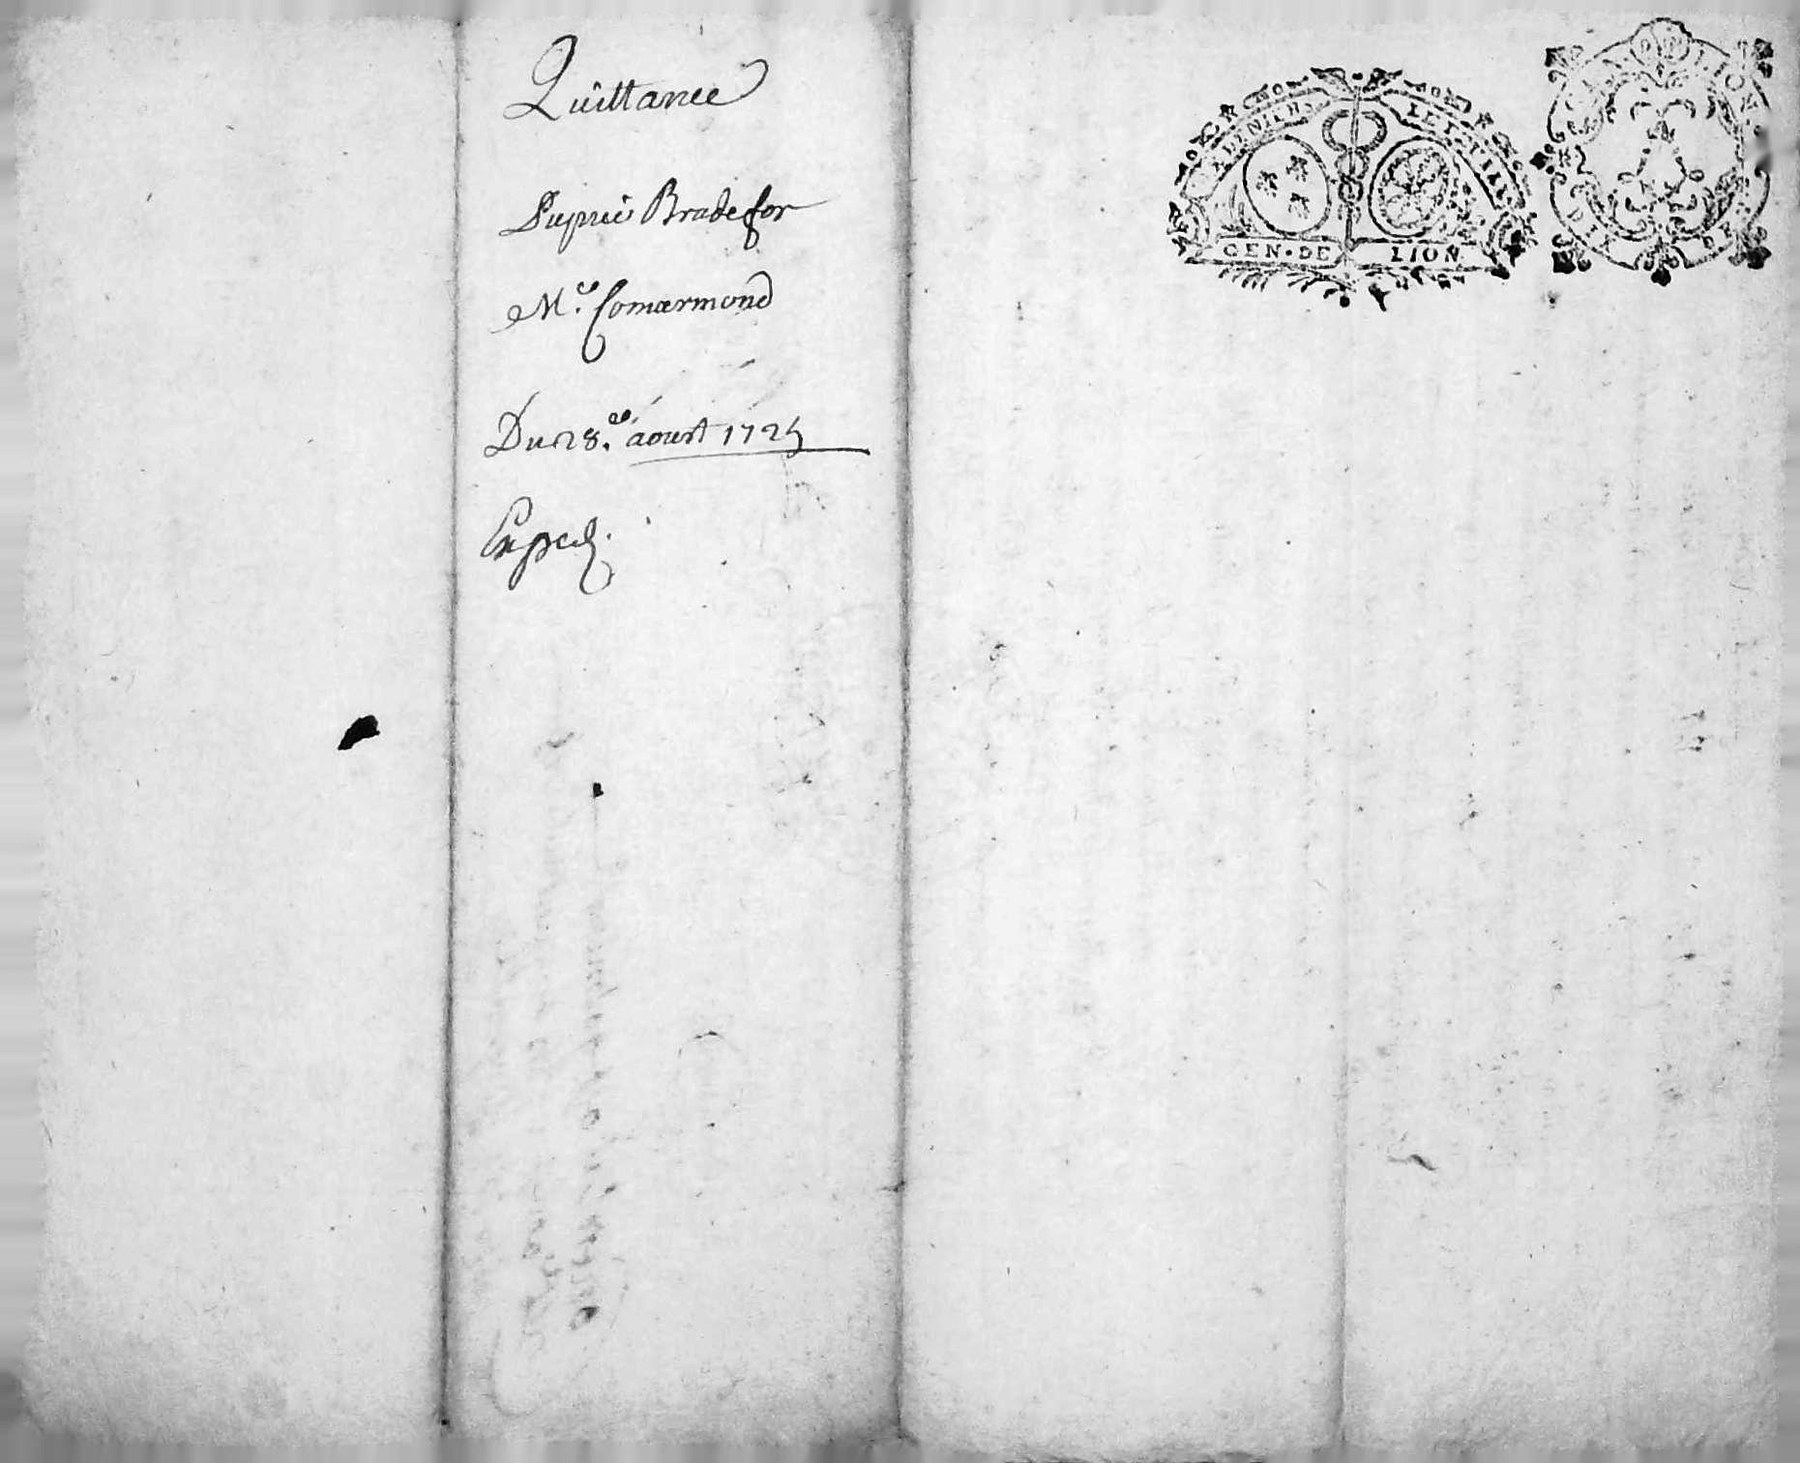 Quittance
Dupré Bradefer
Me. Comarmond
Du 28e. aoust 1725
Exped.
GEN. DE LION